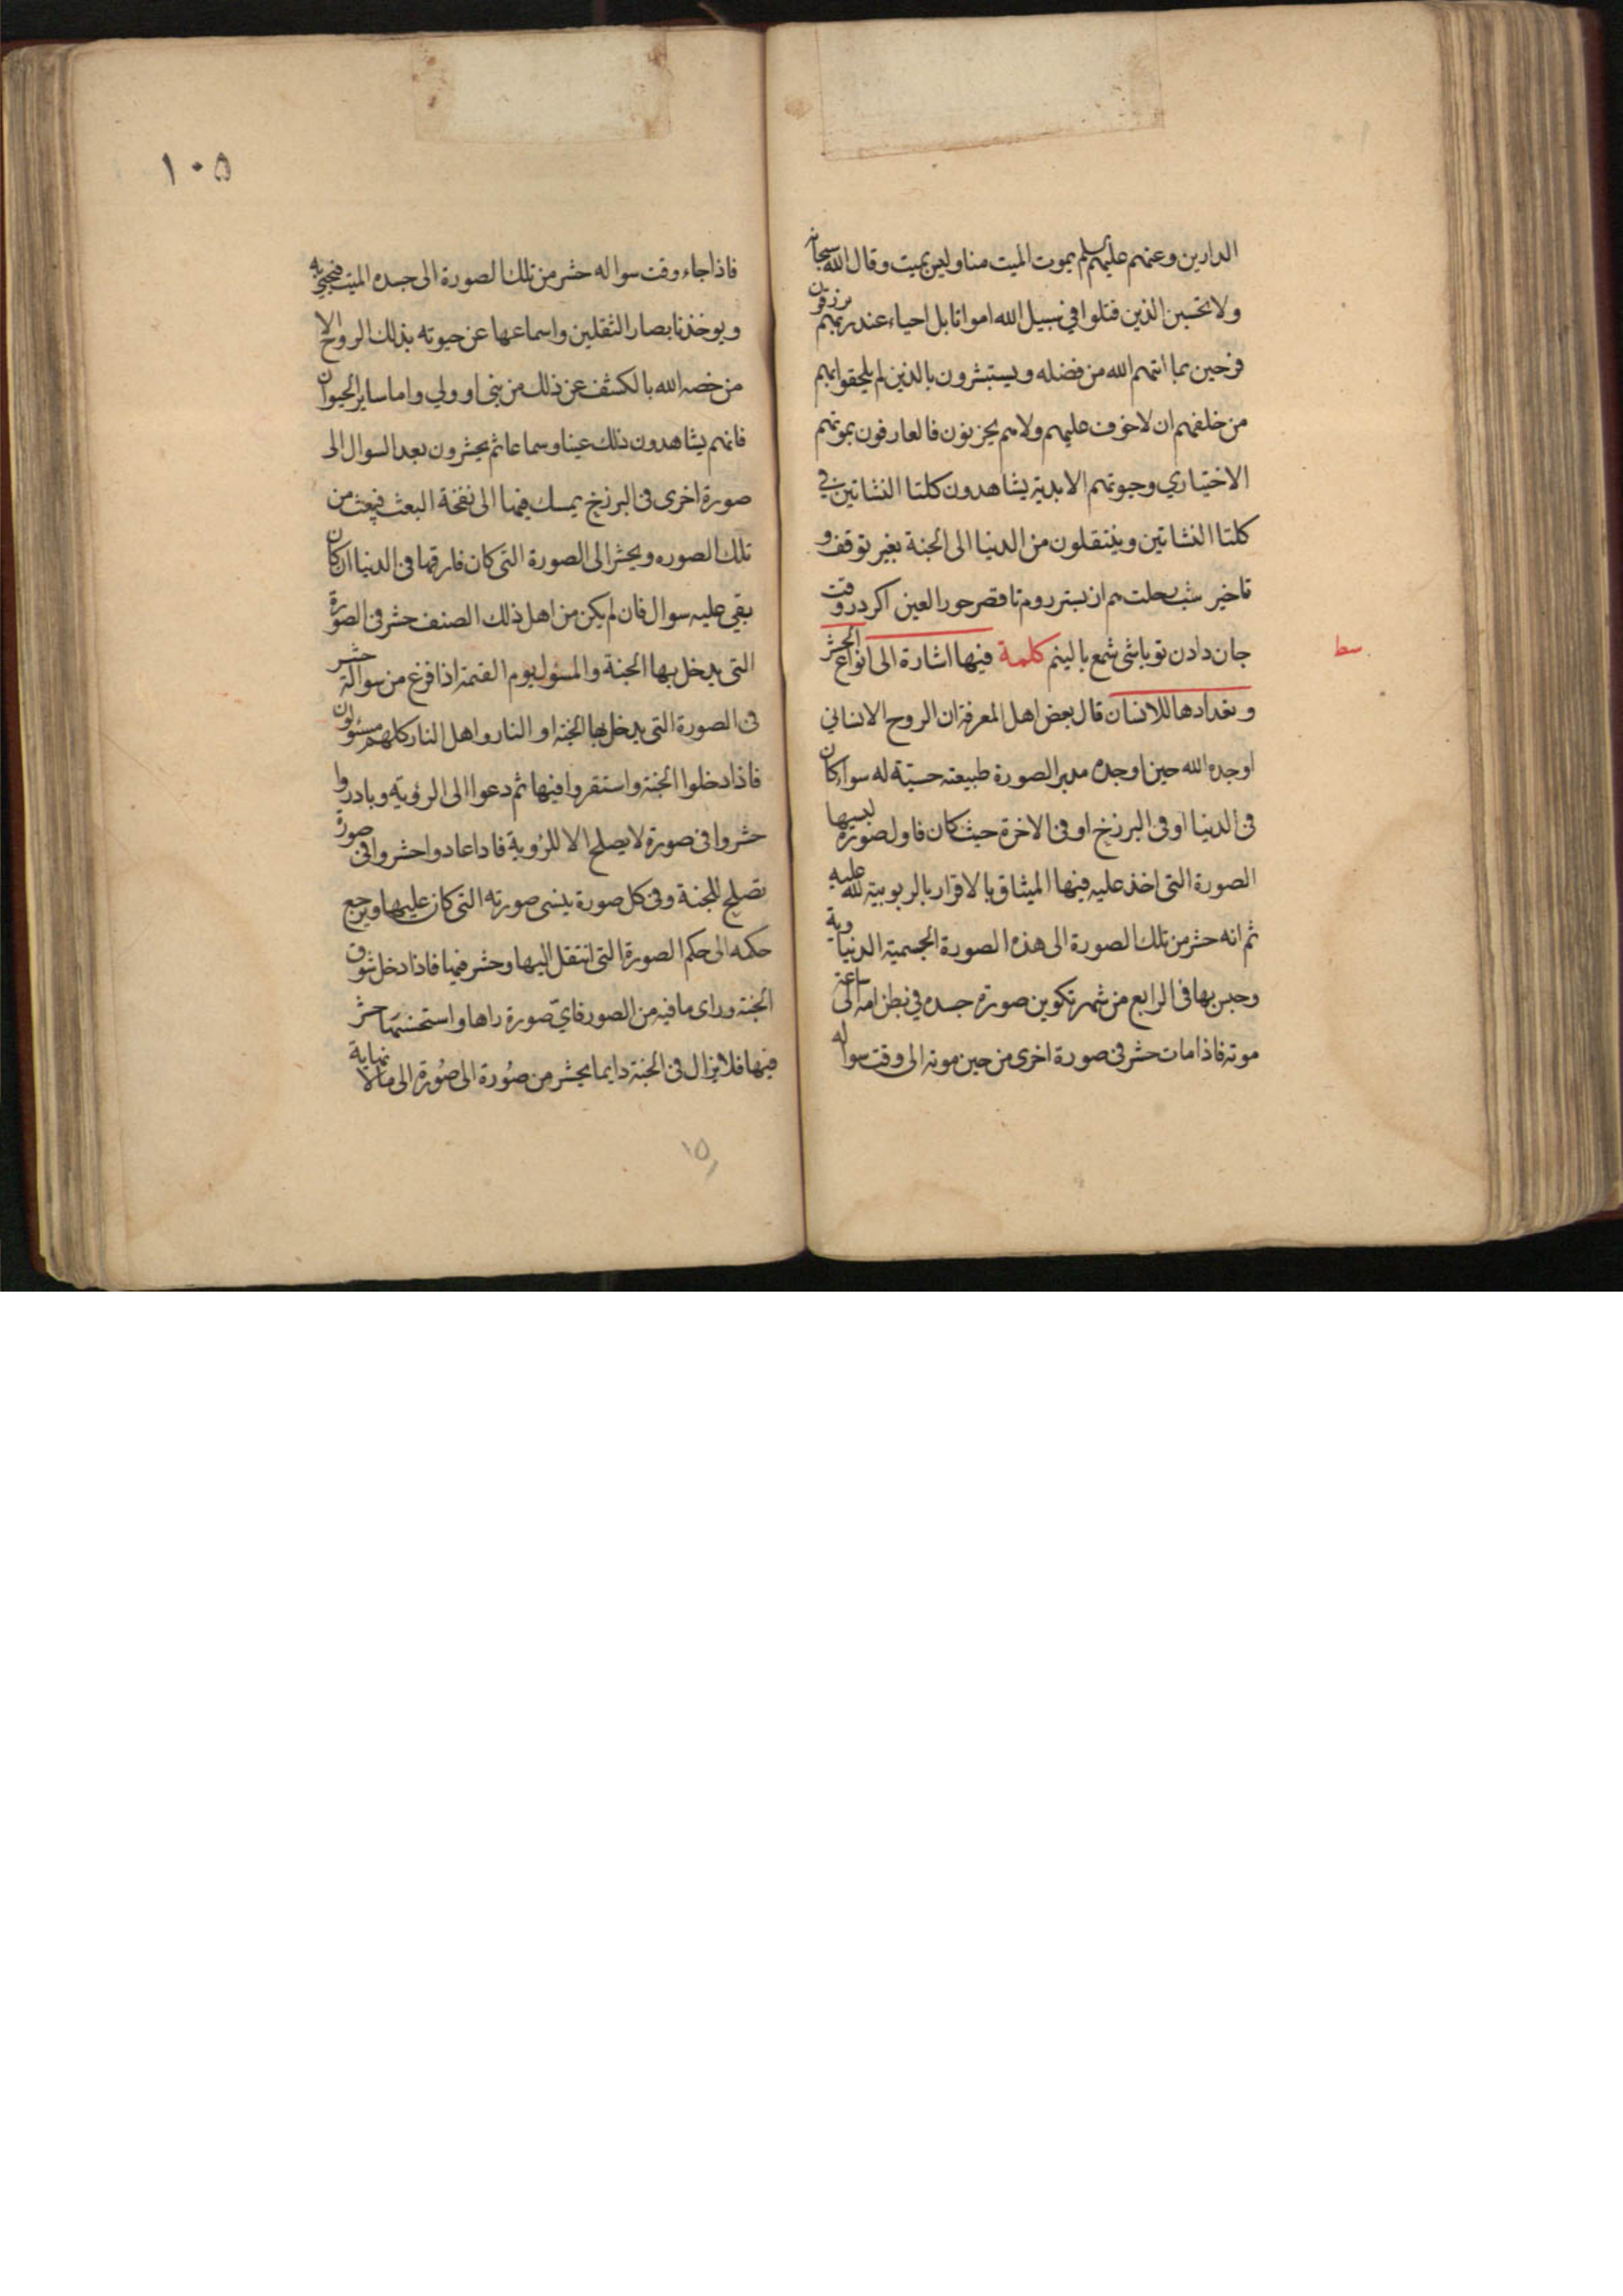 الدارين وعنهم عليهم السلم يموت الميت منا وليس بميت وقال الله سبحانه
ولا تحسبن الذين قتلوا في سبيل الله امواتا بل احياء عند ربهم يرزقون
فرحين بما اتيهم الله من فضله ويستبشرون بالذين لم يلحقوا بهم
من خلفهم ان لا خوف عليهم ولا هم يحزنون فالعارفون بموتهم
الاختياري وحيوتهم الابدية يشاهدون كلتا النشاتين في
كلتا النشاتين وينتقلون من الدنيا الى الجنة بغير توقف و
تاخير شب رحلت هم از بستر روم تا قصر حور العين اكر در وقت
جان دادن تو باشى شمع بالينم كلمة فيها اشارة الى انواع الحشر
سط
وتعدادها للانسان قال بعض اهل المعرفة ان الروح الانساني
اوجده الله حين اوجده مدبر الصورة طبيعته حسية له سواء كان
فى الدنيا او فى البرزخ او فى الاخرة حيث كان فاول صورة لبسها
الصورة التى اخذ عليه فيها الميثاق بالاقرار بالربوبية لله عليه
ثم انه حشر من تلك الصورة الى هذه الصورة الجسمية الدنياوية
وحبس بها فى الرابع من شهر تكوين صورة جسده في بطن امه الى ساعة
موته فاذا مات حشر فى صورة اخرى من حين موته الى وقت سواله
١٠٥
فاذا جاء وقت سواله حشر من تلك الصورة الى جسده الميت فيحيى به
ويوخذ بابصار الثقلين واسماعها عن حيوته بذلك الروح الا
من خصه الله بالكشف عن ذلك من نبى او ولي واما ساير الحيوان
فانهم يشاهدون ذلك عينا وسماعا ثم يحشرون بعد السوال الى
صورة اخرى فى البرزخ يمسك فيها الى نفخة البعث فيبعث من
تلك الصوره ويحشر الى الصورة التى كان فارقها فى الدنيا ان كان
بقي عليه سوال فان لم يكن من اهل ذلك الصنف حشر فى الصورة
التى يدخل بها الجنة والمسئول يوم القيمة اذا فرغ من سواله حشر
فى الصورة التى يدخل بها الجنة او النار واهل النار كلهم مسئولون
فاذا دخلوا الجنة واستقروا فيها ثم دعوا الى الرؤية وبادروا
حشروا فى صورة لا يصلح الا للرؤية فاذا عادوا حشروا فى صورة
تصلح للجنة وفى كل صورة ينسى صورته التى كان عليها ويرجع
حكمه الى حكم الصورة التى انتقل اليها وحشر فيها فاذا دخل سوق
الجنة وراى ما فيه من الصور فايّ صورة راها واستحسنها حشر
فيها فلا يزال فى الجنة دايما يحشر من صورة الى صورة الى ما لا نهاية
١٥